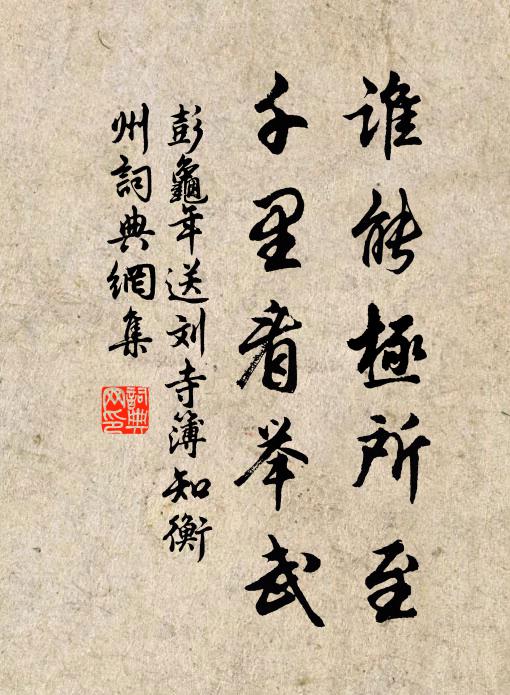 谁能極所至
千里看举武
彭龜年送刘寺簿知衡
州詞典網集
詞典
网印